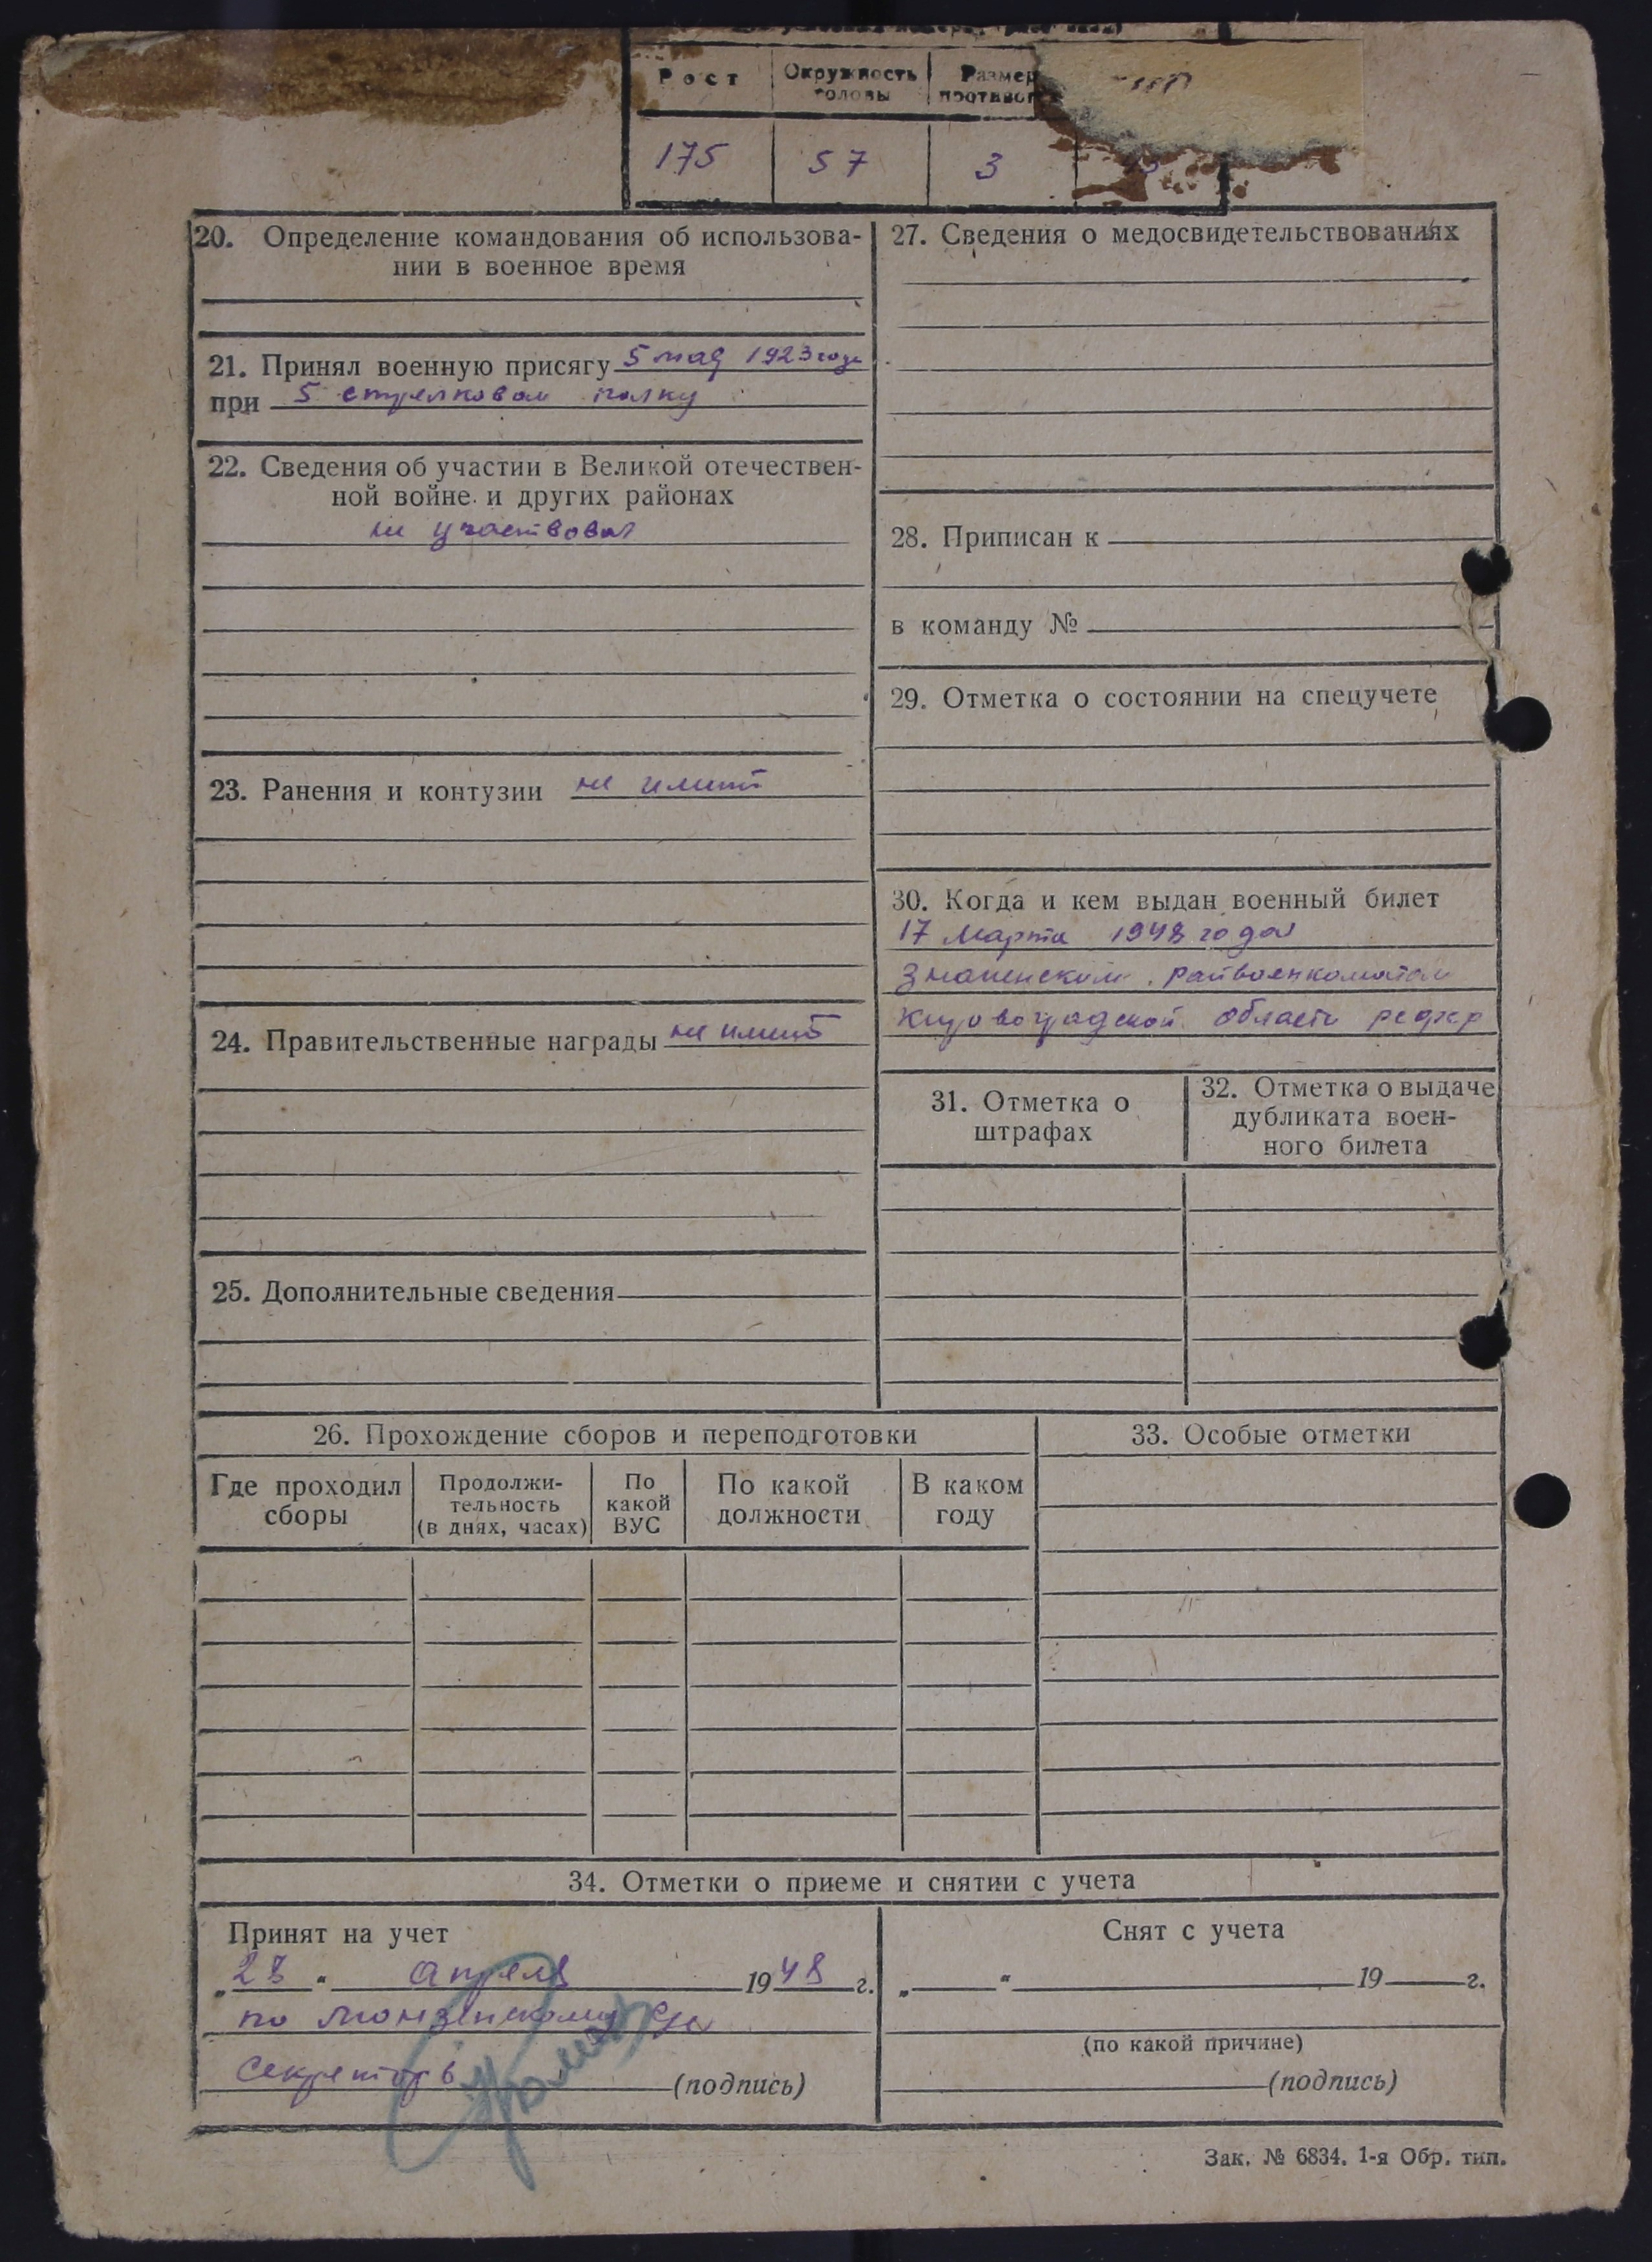 Рост Окружность головы Размер
175 57 3
20. Определение командования об использова-
нии в военное время
21. Принял военную присягу 5 мая 1923 года
при 5 стрелковом полку
22. Сведения об участии в Великой отечествен-
ной войне и других районах
не участвовал
23. Ранения и контузии не имеет
24. Правительственные награды не имеет
25. Дополнительные сведения
27. Сведения о медосвидетельствованиях
28. Приписан к
в команду №
29. Отметка о состоянии на спецучете
30. Когда и кем выдан военный билет
17 марта 1948 года
райвоенкоматом
Кировоградской области
31. Отметка о
штрафах
32. Отметка о выдаче
дубликата воен-
ного билета
26. Прохождение сборов и переподготовки
Где проходил
сборы
Продолжи-
тельность
(в днях, часах)
По
какой
ВУС
По какой
должности
В каком
году
33. Особые отметки
34. Отметки о приеме и снятии с учета
Принят на учет
„28“ апреля 1948 г.
по
секретарь (подпись)
Снят с учета
„ “ 19 г.
(по какой причине)
(подпись)
Зак. № 6834. 1-я Обр. тип.